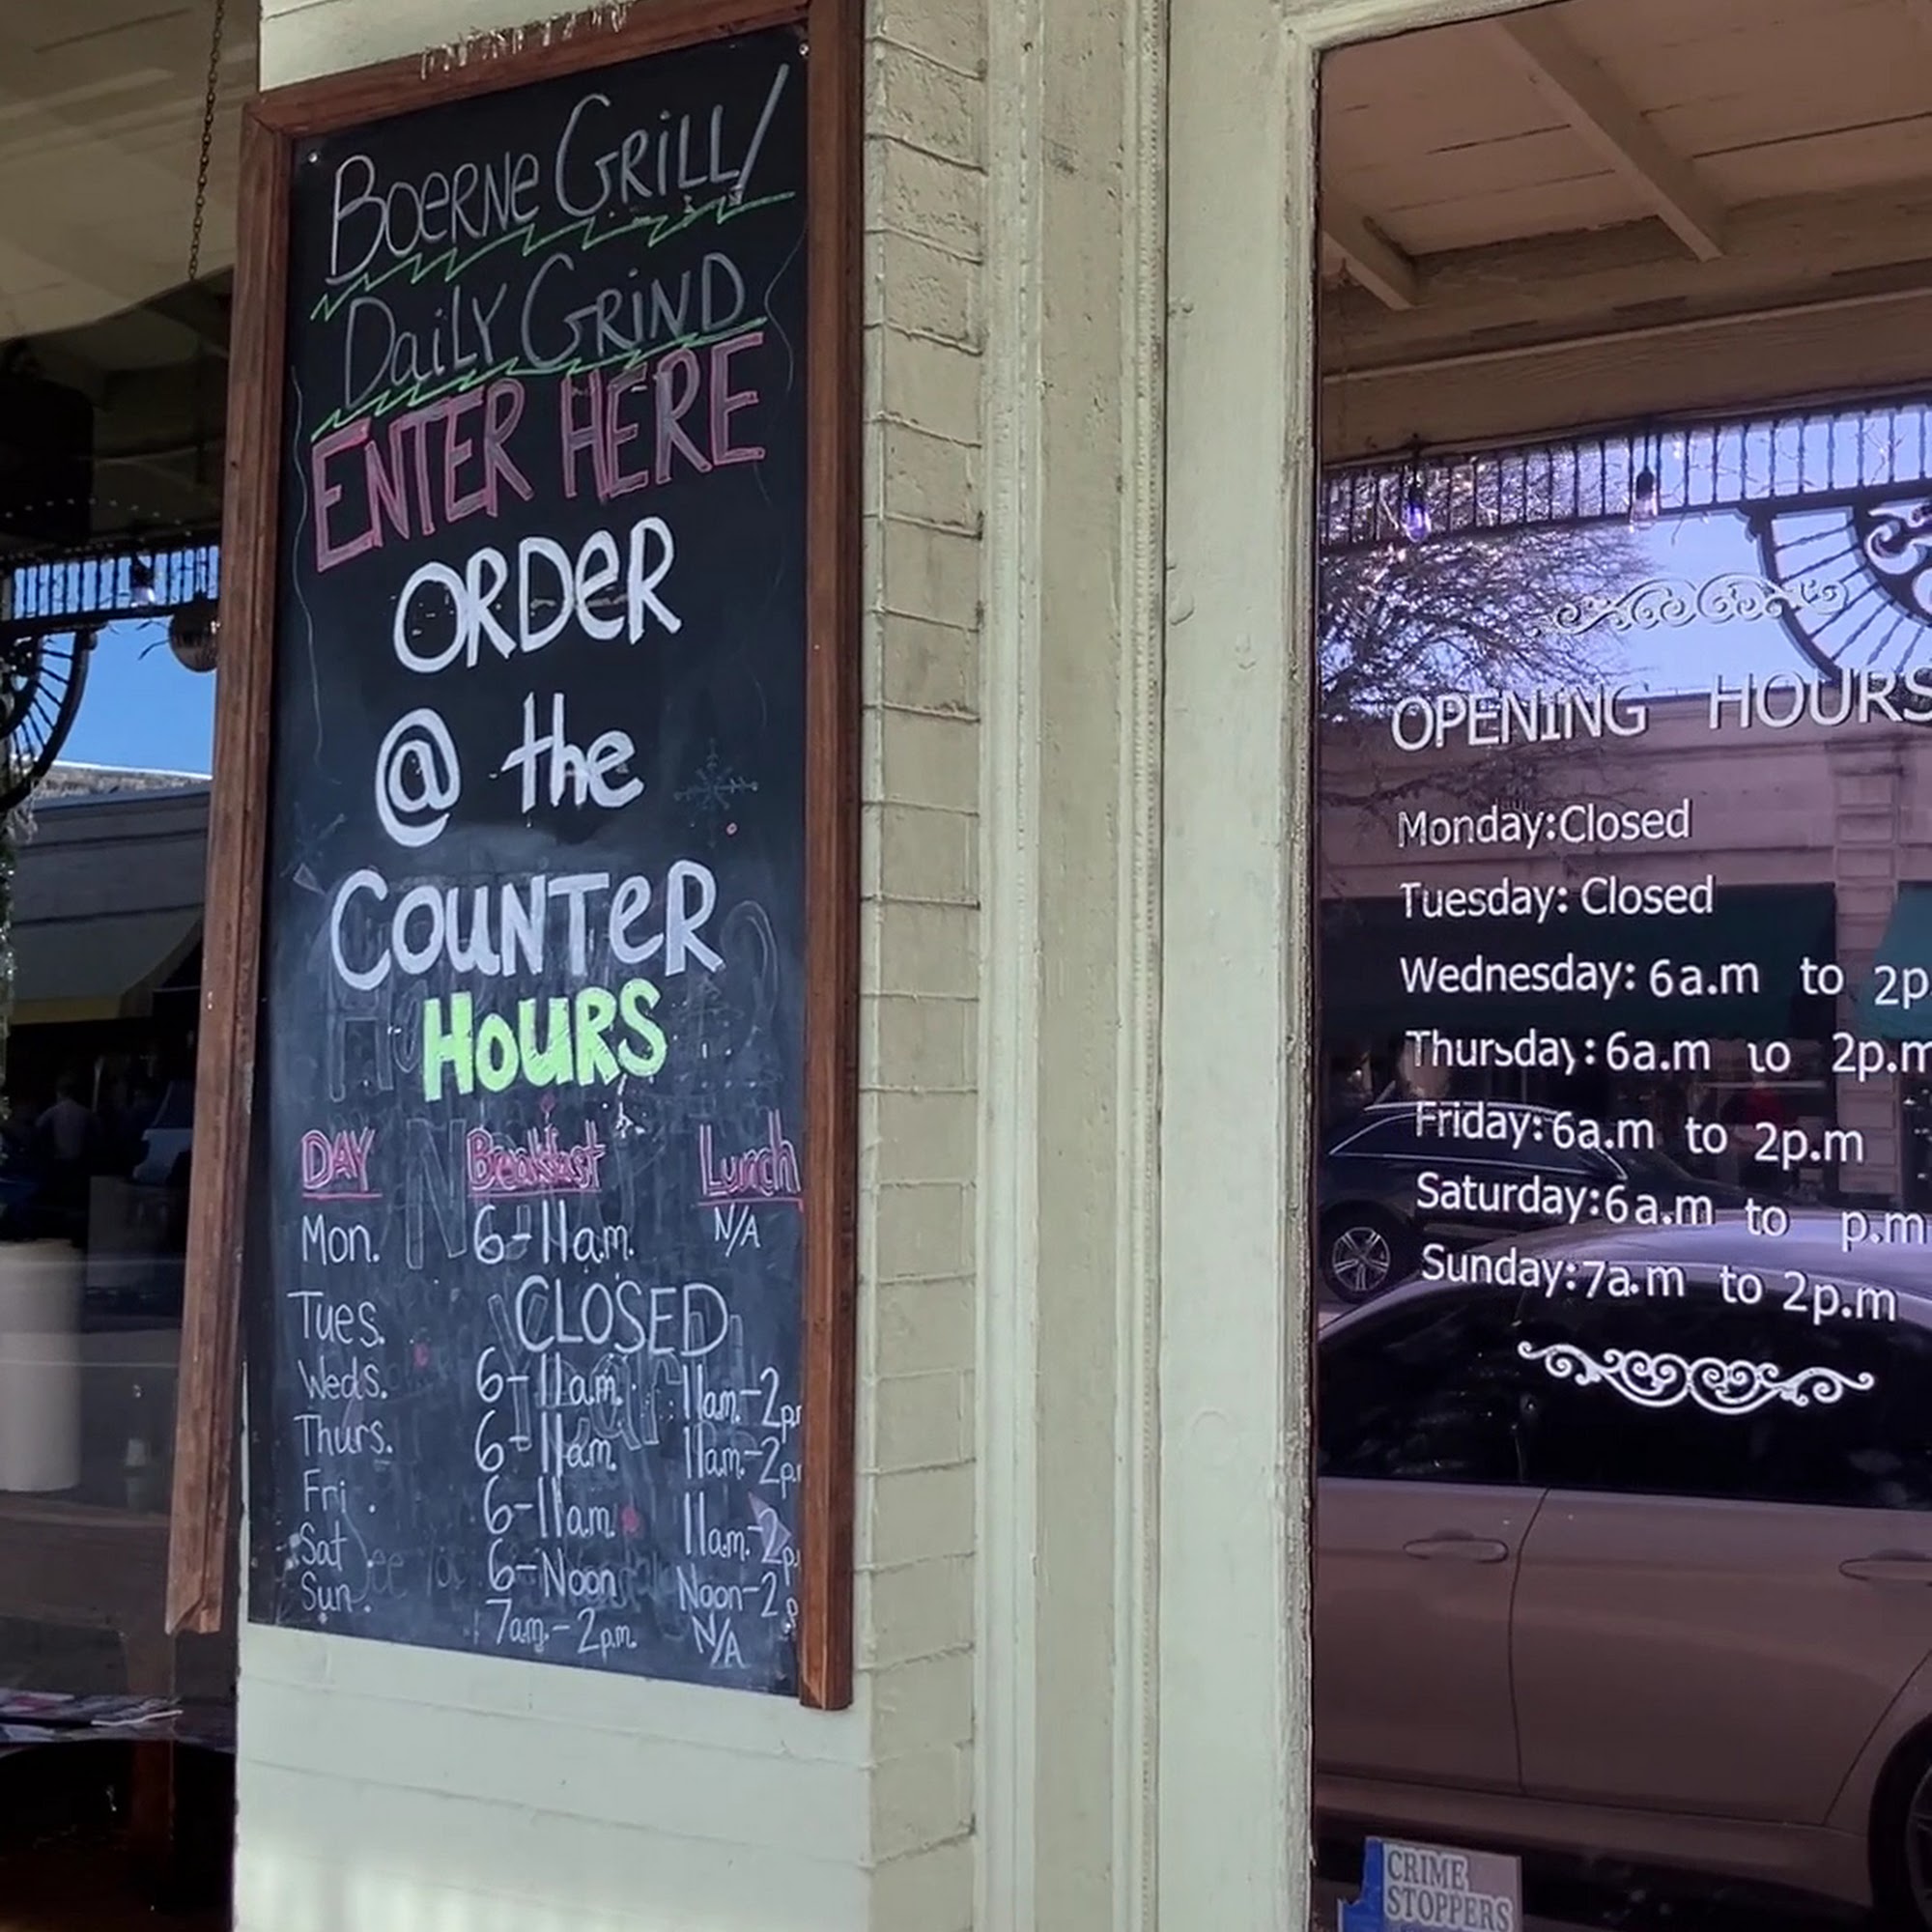 BOERNE GRILL/
DAILY GRIND
ENTER HERE
ORDER
@ the
COUNTER
HOURS
DAY Breakfast Lunch
Mon. 6-11am. N/A
Tues. CLOSED
Weds. 6-11am. 11am.-2p
Thurs. 6-11am. 11am.-2p.
Fri. 6-11am. 11am.-2p.
Sat. 6-Noon Noon-2
Sun. 7am.-2pm. N/A
OPENING HOURS
Monday:Closed
Tuesday: Closed
Wednesday: 6a.m to 2p
Thursday: 6a.m to 2p.m
Friday:6a.m to 2p.m
Saturday:6a.m to p.m
Sunday:7a.m to 2p.m
CRIME
STOPPERS